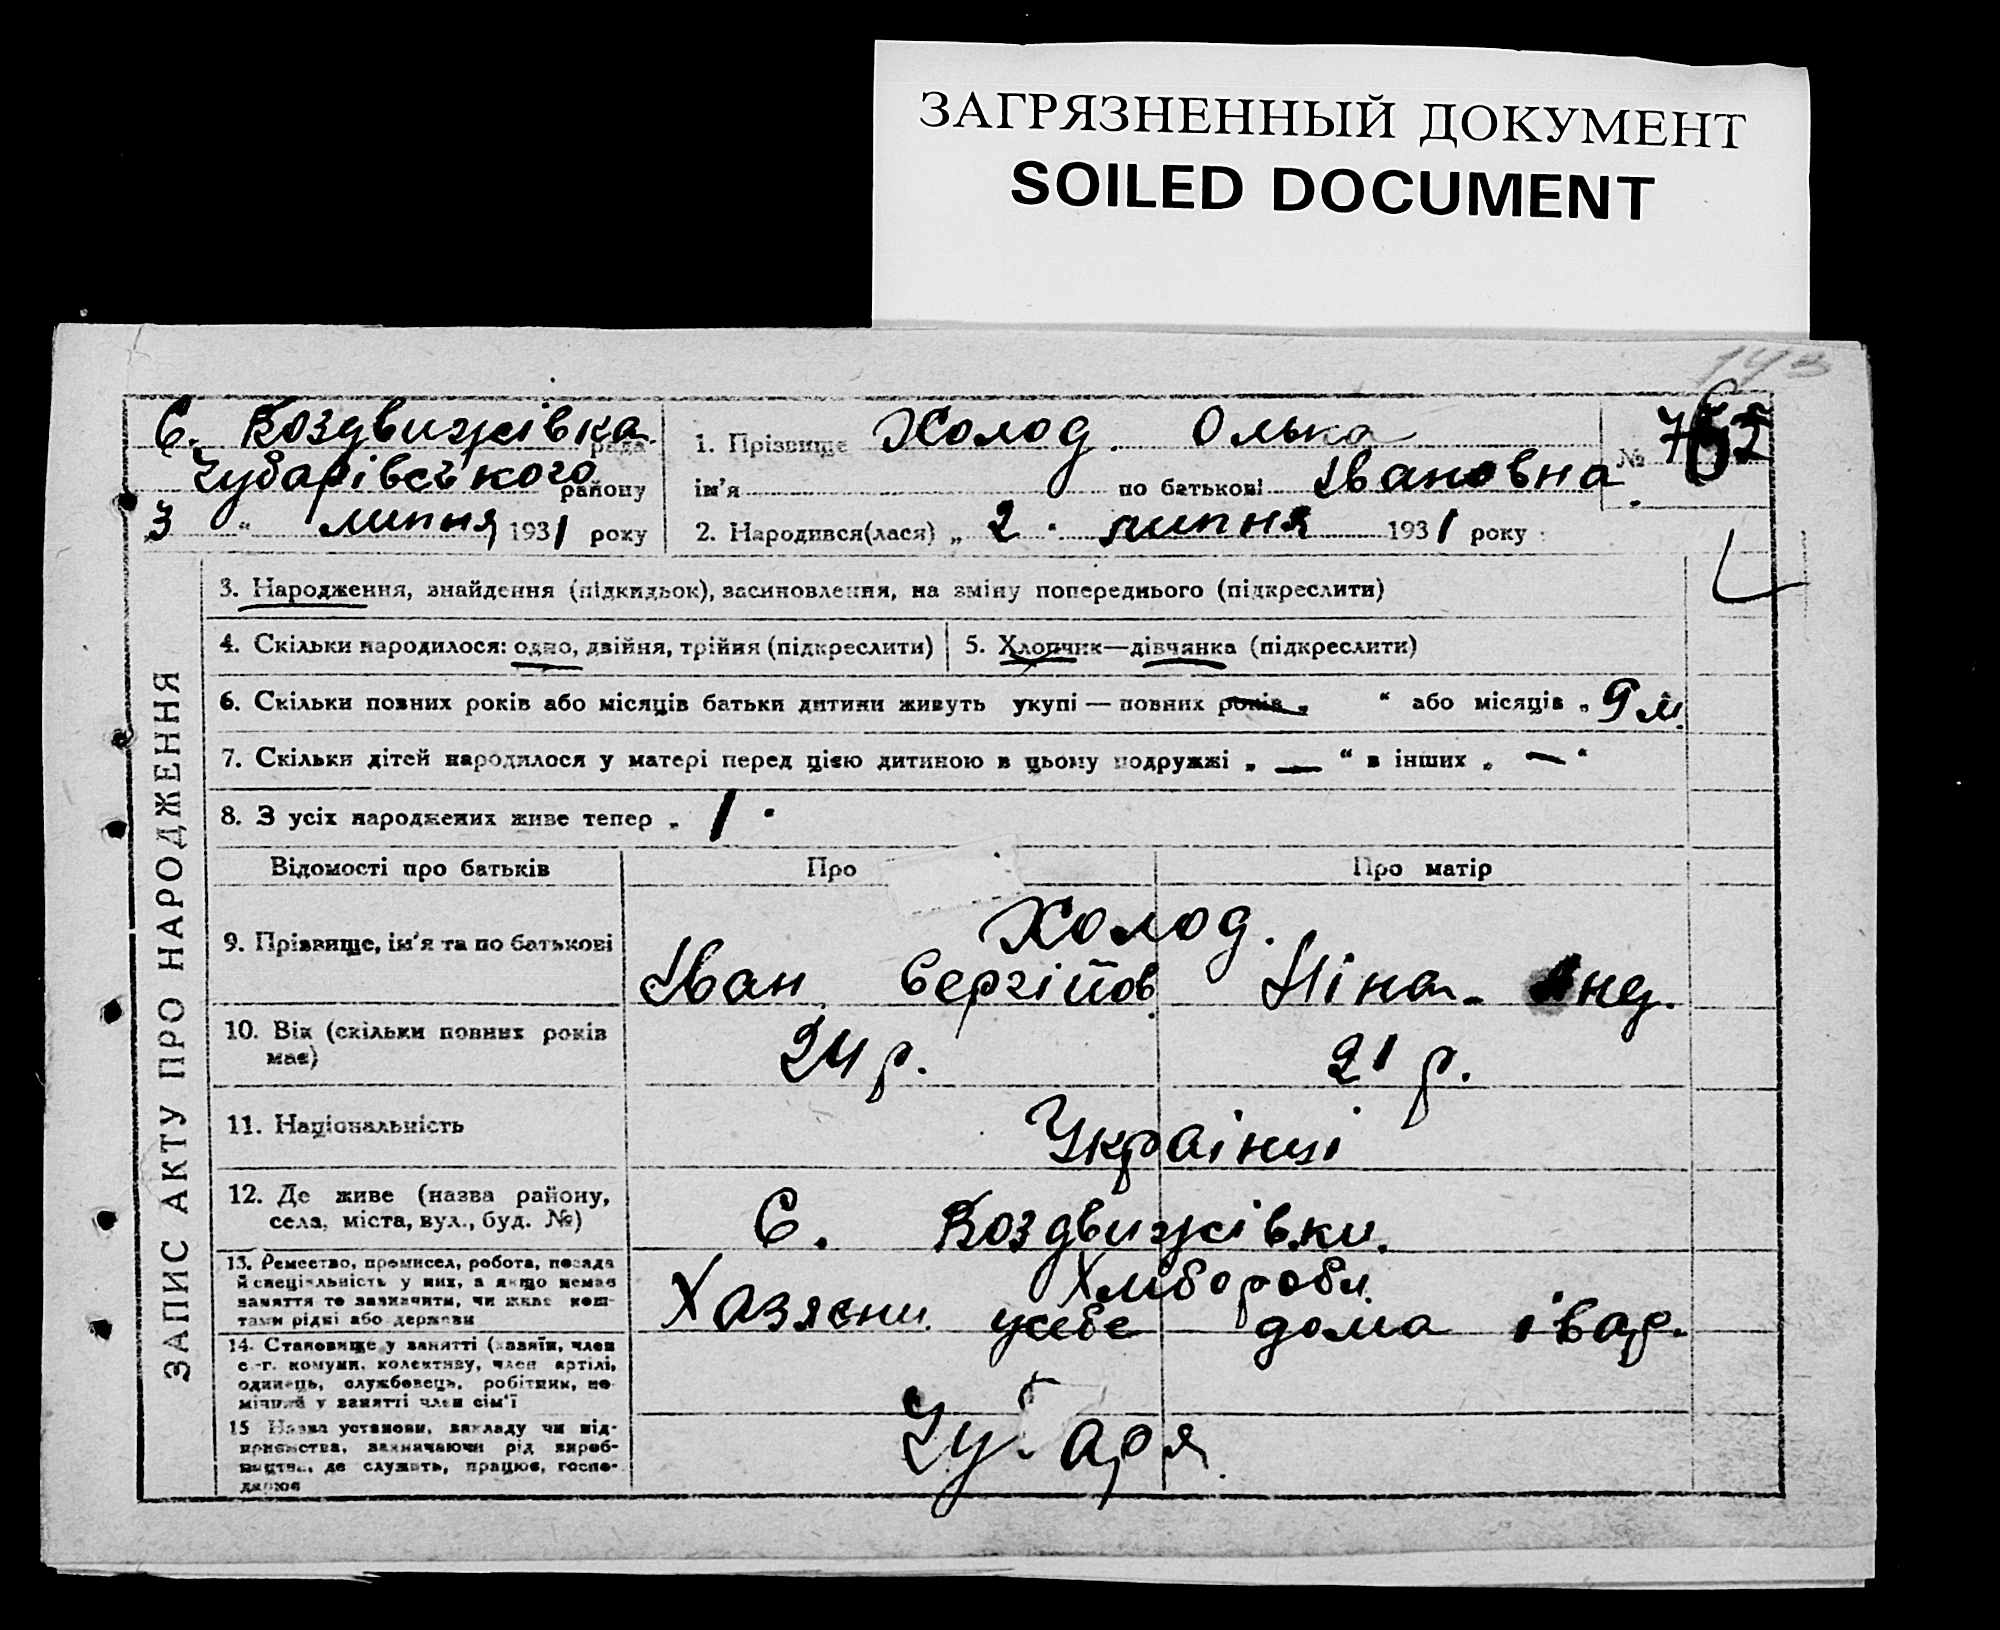 ЗАГРЯЗНЕННЫЙ ДОКУМЕНТ
SOILED DOCUMENT
143
С. Воздвижівка рада
Чубарівського району
3 " липня 1931 року
1. Прізвище Холод Олька
ім'я по батькові Івановна
№
2. Народився(лася) „ 2 липня 1931 року
ЗАПИС АКТУ ПРО НАРОДЖЕННЯ
3. Народження, знайдення (підкидьок), засиновлення, на зміну попереднього (підкреслити)
4. Скільки народилося: одно, двійня, трійня (підкреслити)
5. Хлопчик—дівчянка (підкреслити)
6. Скільки повних років або місяців батьки дитини живуть укупі — повних років „ “ або місяців „ 9 м.
7. Скільки дітей народилося у матері перед цією дитиною в цьому подружжі „ — “ в інших „ — “
8. З усіх народжених живе тепер „ 1
Відомості про батьків
Про
Про матір
9. Прізвище, ім'я та по батькові
Холод.
Іван Сергійов
Ніна Анд.
10. Вік (скільки повних років має)
24 р.
21 р.
11. Національність
Українці
12. Де живе (назва району,
села, міста, вул., буд. №)
С. Воздвижівки.
13. Ремество, промисел, робота, посада
й спеціяльність у них, а якщо немає
заняття то зазначити, чи живе кош-
тами рідні або держави
Хлібороби
Хазяєни усебе дома
14. Становище у занятті (хазяїн, член
с.-г. комуни, колективу, член артілі,
одинець, службовець, робітник, по-
мічний у занятті член сім'ї
15 Назва установи, закладу чи під-
приємства, зазначаючи рід вироб-
ництва, де служить, працює, госпо-
дарює